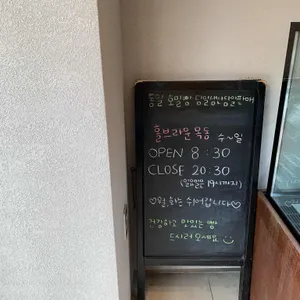 통밀 호밀빵
홀브라운 목동 수~일
OPEN 8:30
CLOSE 20:30
(일요일은 19시까지)
♡월,화는 쉬어갑니다♡
건강하고 맛있는 빵
드시러 오세요